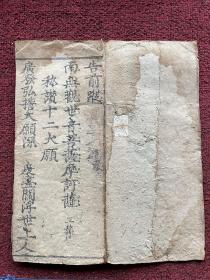 告前
南無觀世音菩薩摩訶薩
称讚十二大願
廣發弘誓大願深 度盡閻浮世上人